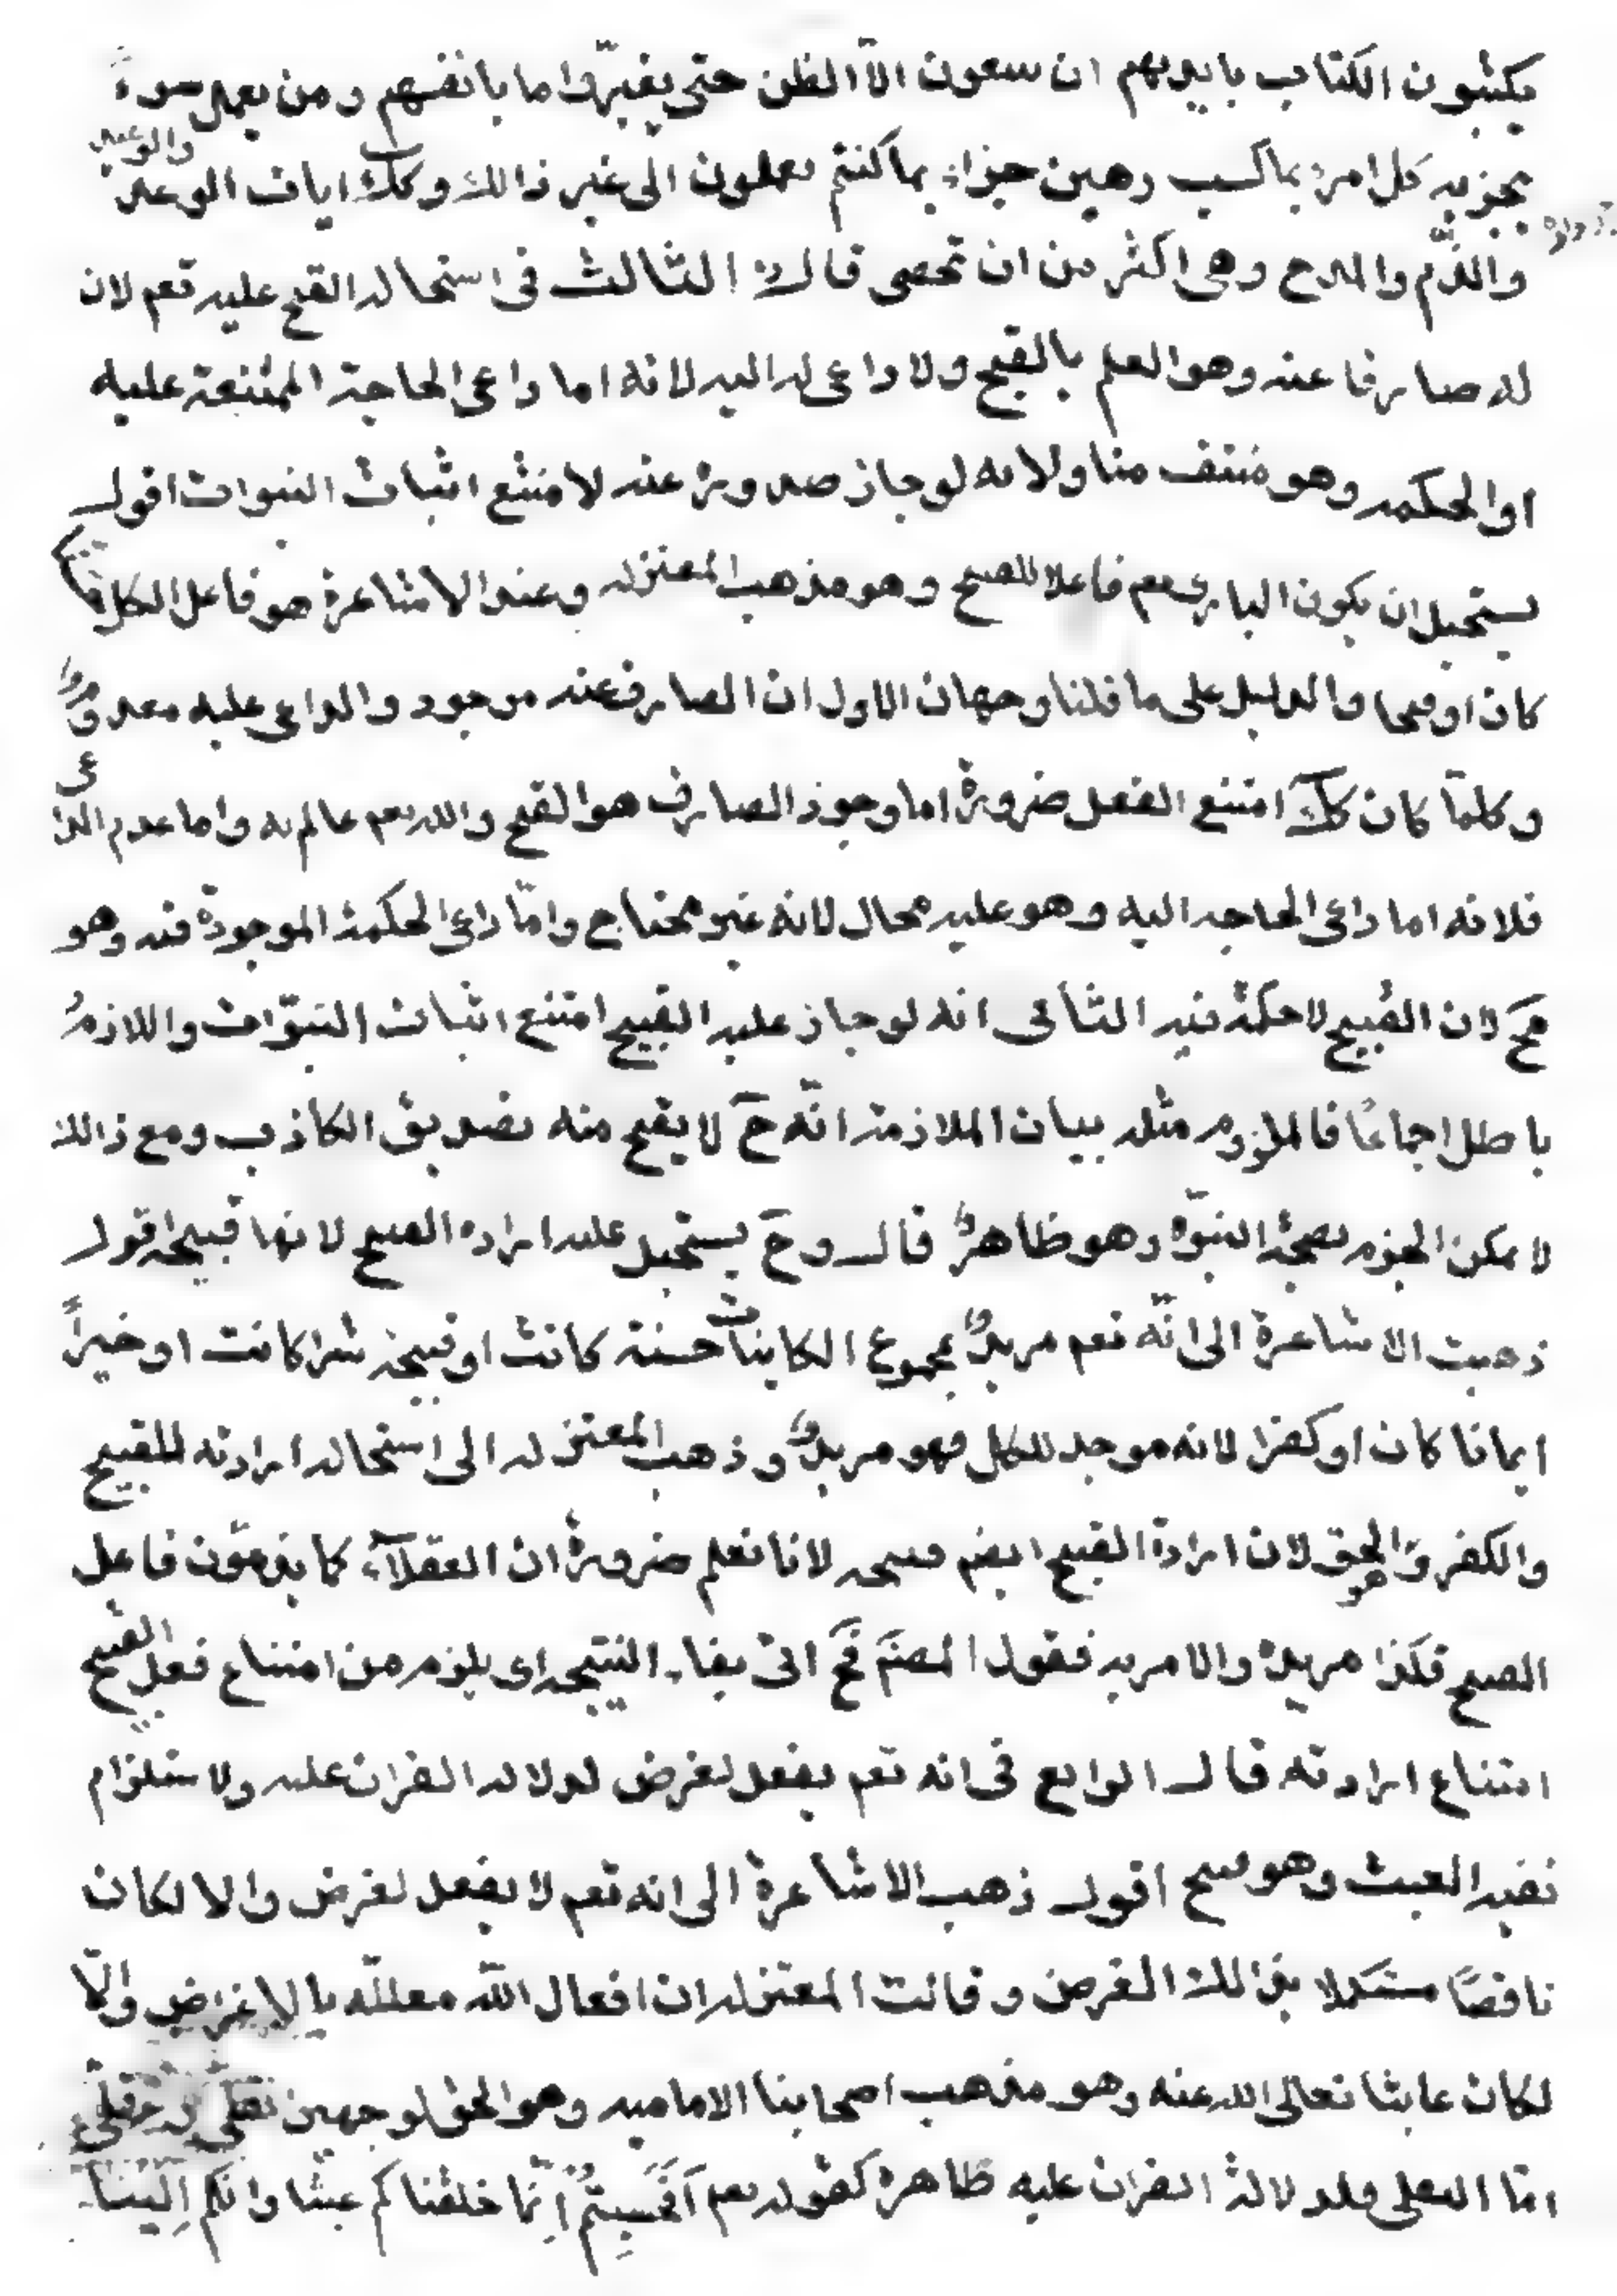 يكتبون الكتاب بايديهم ان يتبعون الّا الظن حتى يغيّروا ما بانفسهم ومن يعمل سوءً
يجز به كل امرء بما كسب رهين جزاء بما كنتم تعملون الى غير ذالك وكك ايات الوعد والوعيد
والذّم والمدح وهى اكثر من ان تحصى قال الثالث فى استحاله القبح عليه تعم لان
له صارفا عنه وهو العلم بالقبح ولا داعى له اليه لانه اما داعى الحاجة الممتنعة عليه
او الحكمه وهو منتف منا ولانه لو جاز صدوره عنه لامتنع اثبات النبوات اقول
يستحيل ان يكون البارى تعم فاعلا للقبيح وهو مذهب المعتزله وعند الاشاعرة هو فاعل الكل
كان او قبيحا والدليل على ما قلنا وجهان الاول ان الصارف عنه موجود والداعى عليه معدوم
وكلّما كان كك امتنع الفعل ضرورة اما وجود الصارف هو القبح والله تعم عالم به واما عدم الداعى
فلانه اما داعى الحاجه اليه وهو عليه محال لانه غير محتاج وامّا داعى الحكمة الموجودة فيه وهو
مح لان القبيح لا حكمة فيه الثانى انه لو جاز عليه القبيح امتنع اثبات النبوّات واللازم
باطل اجماعًا فالملزوم مثله بيان الملازمة انّه ح لا يقبح منه تصديق الكاذب ومع ذالك
لا يمكن الجزم بصحة النبوّة وهو ظاهر قال وح يستحيل عليه اراده القبيح لانها قبيحه اقول
ذهبت الاشاعرة الى انّه تعم مريد بمجموع الكاينات حسنة كانت او قبيحة شرا كانت او خيراً
ايمانا كان او كفرا لانه موجد للكل فهو مريد وذهب المعتزله الى استحاله ارادته للقبيح
والكفر وهو الحق لان ارادة القبيح ايضم قبيحه لانا نعلم ضرورة ان العقلآء كما يذمّون فاعل
القبيح فكذا مريده والامر به فقول المصنم فح اتى بفاء النتيجه اى يلزم من امتناع فعل القبيح
امتناع ارادته قال الرابع فى انه تعم يفعل لغرض لدلاله القران عليه ولاستلزام
نفيه العبث وهو قبيح اقول ذهب الاشاعرة الى انه تعم لا يفعل لغرض والا لكان
ناقصًا مستكملا بذالك الغرض وقالت المعتزله ان افعال الله معلله بالاغراض والّا
لكان عابثا تعالى الله عنه وهو مذهب اصحابنا الاماميه وهو الحق لوجهين نقلى وعقلى
امّا النقلى فلدلالة القران عليه ظاهرة كقوله تعم اَفَحَسِبتُم اَنّما خلقناكم عبثا وانكم اِلَيْنَا